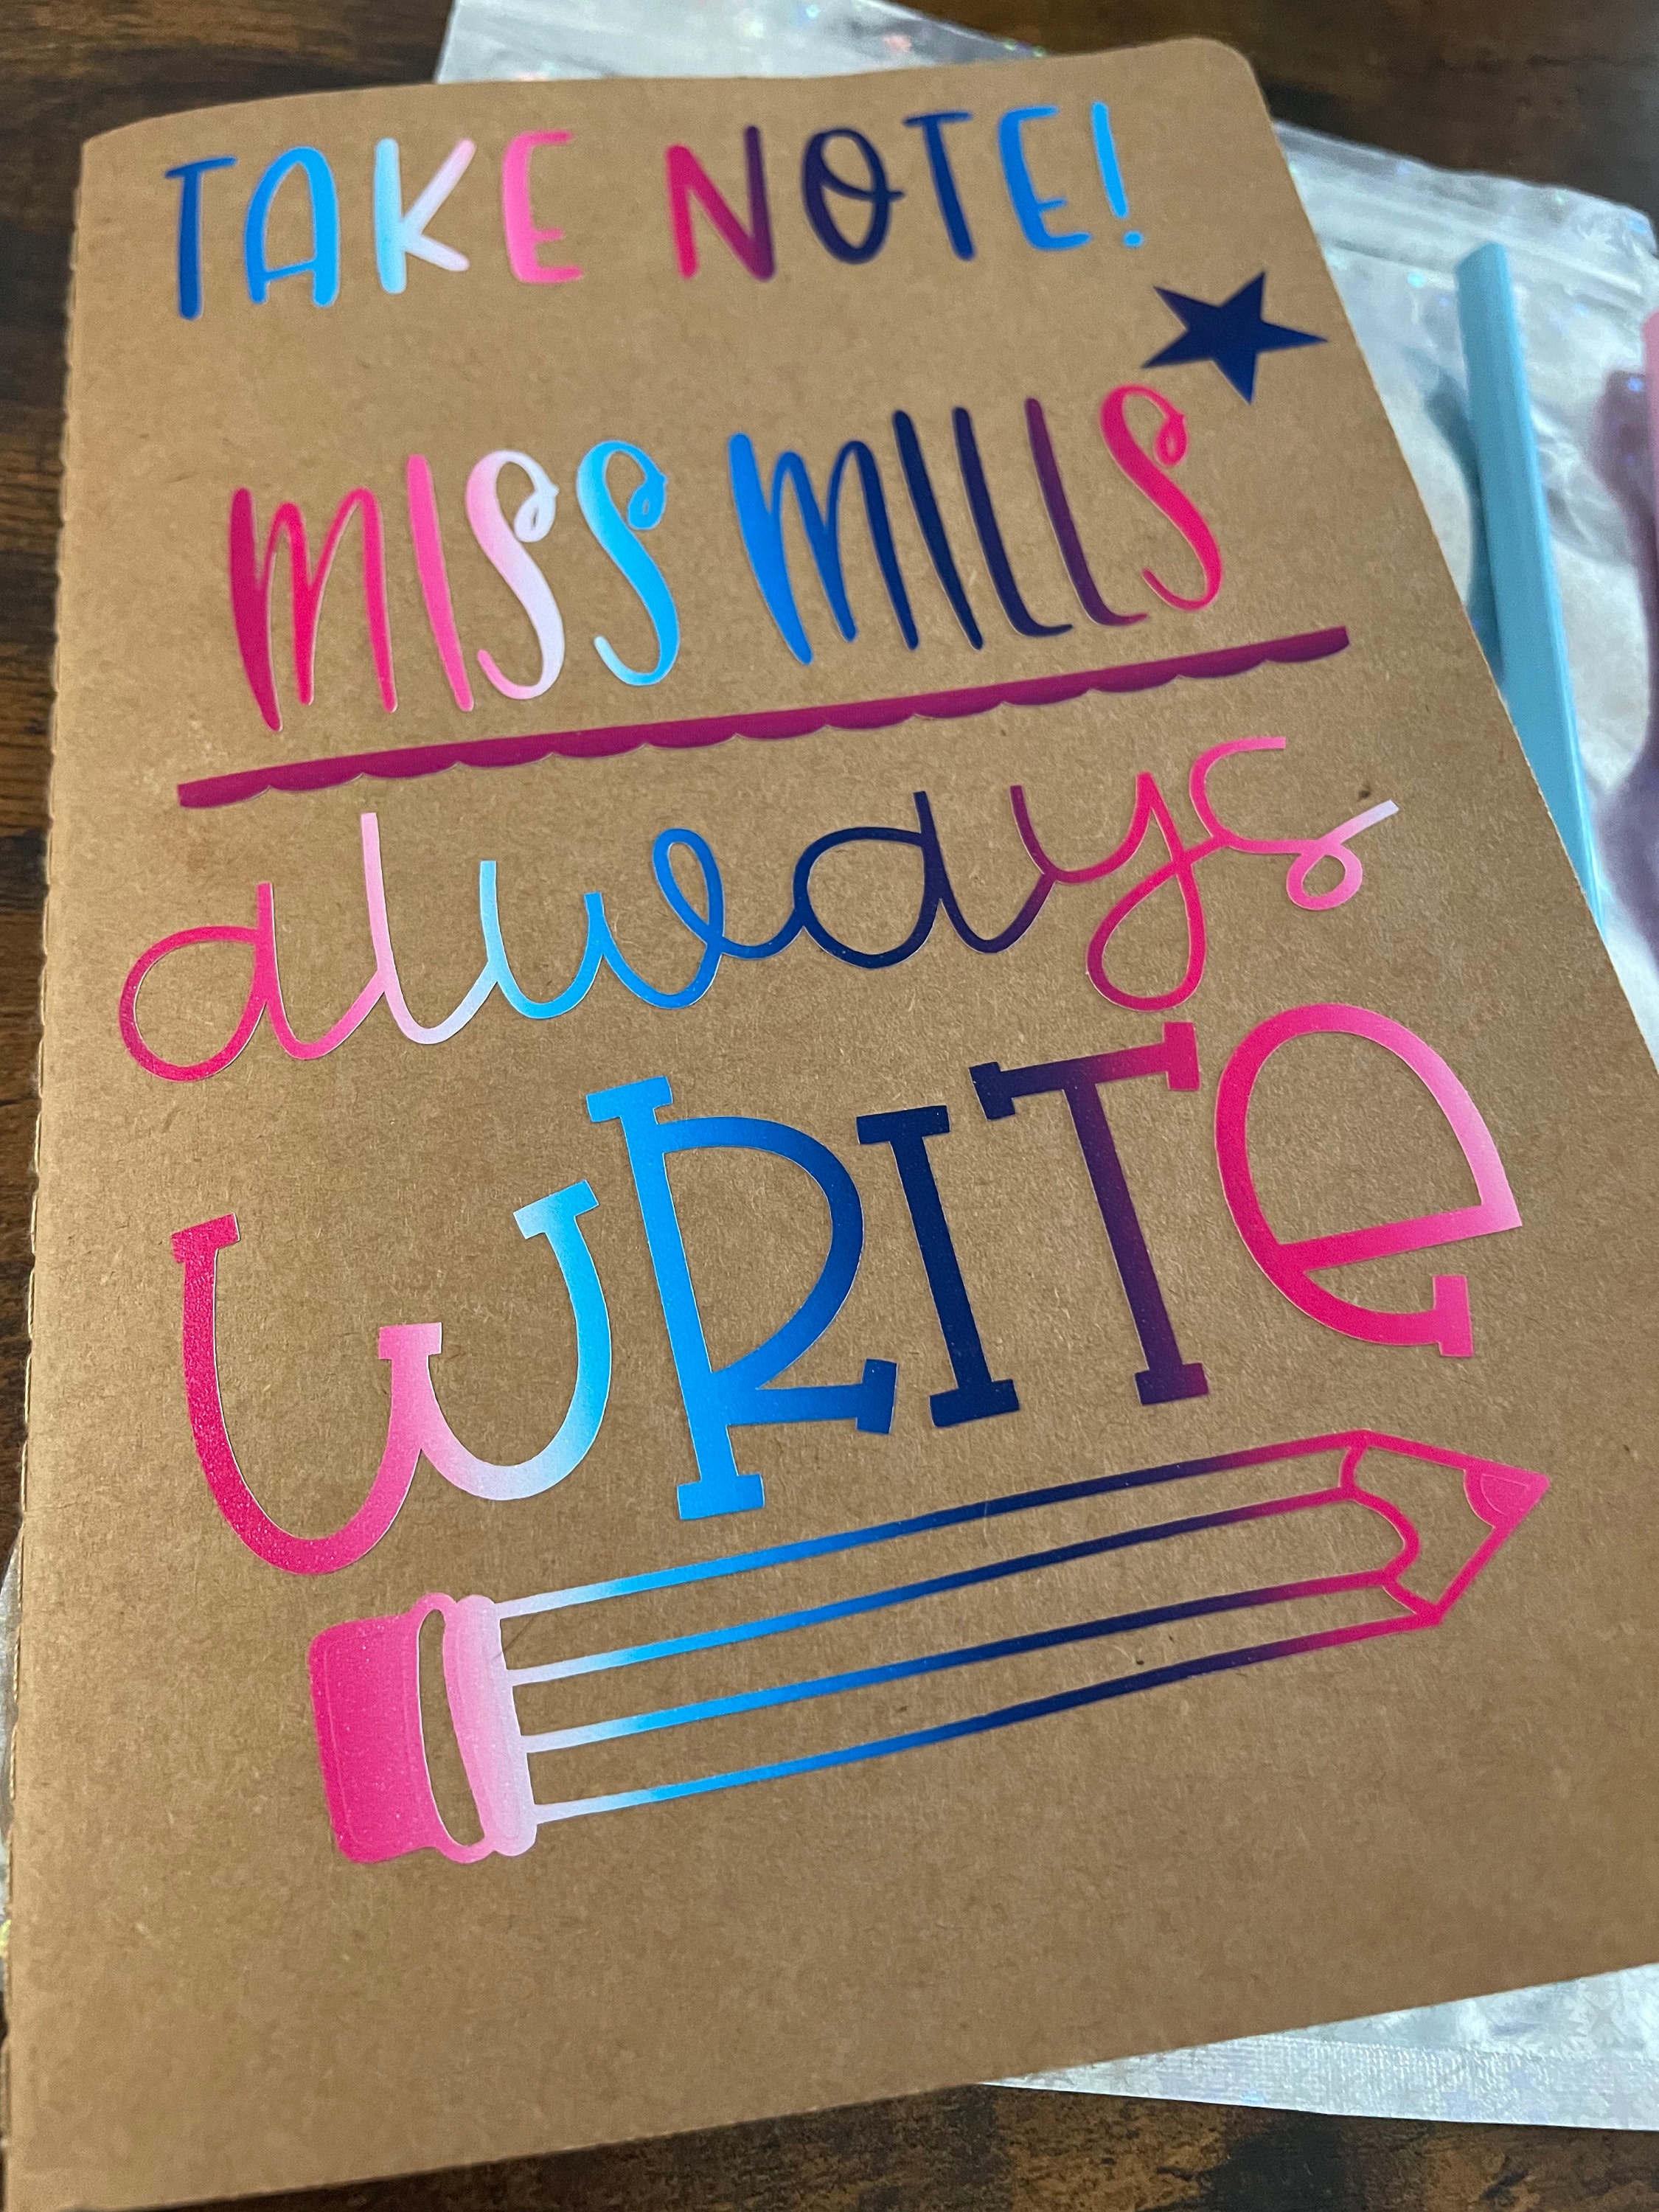 TAKE NOTE!
MISS MILLS
always
WRITe